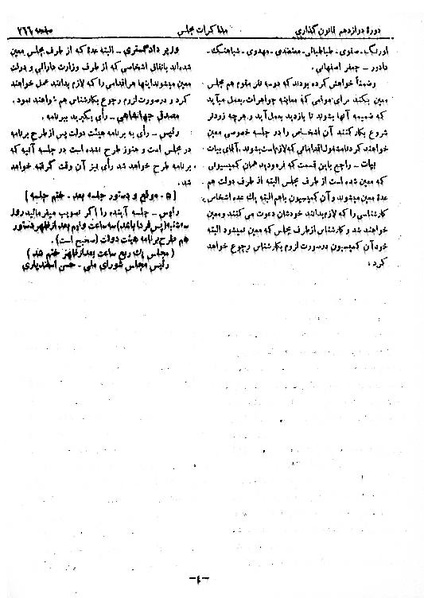 دورهٔ دوازدهم قانون گذاری
مذاکرات مجلس
صفحه ۲۶۶
اورنگ - صفوی - طباطبائی - معتضدی - مهدوی - شباهنگ -
دادور - جعفر اصفهانی.
وضمناً خواهش کرده بودند که دو سه نفر مقوم هم مجلس
معین بکند برای موقعی که معاینهٔ جواهرات بعمل میآید
که ضمیمه آنها بشوند تا بازدید بعمل آید و هرچه زودتر
شروع بکار کنند آن اشخاص را در جلسه خصوصی معین
خواهند کرد تا مشغول اقداماتی که لازم است بشوند. آقای بیات
بیات - راجع باین قسمت که فرمودید همان کمیسیونی
معین شده است از طرف مجلس البته از طرف دولت هم
عدهٔ معین میشوند و آن کمیسیون باهم البته یک عده اشخاص
کارشناسی را که لازم بدانند خودشان دعوت می کنند و معین
خواهند شد و کارشناس از طرف مجلس که معین نمیشود البته
خود آن کمیسیون در صورت لزوم بکارشناس رجوع خواهد
کرد.
وزیر دادگستری - البته عدهٔ که از طرف مجلس معین
شده‌اند باتفاق اشخاصی که از طرف وزارت دارائی و دولت
معین میشوند اینها هر اقدامی را که لازم بدانند عمل خواهند
کرد و در صورت لزوم رجوع بکارشناس هم خواهد شد.
مصدق جهانشاهی - رأی بگیرید ببرنامه.
رئیس - رأی به برنامه هیئت دولت پس از طرح برنامه
در مجلس است و هنوز طرح نشده است در جلسه آتیه که
برنامه طرح خواهد شد رأی نیز آن وقت گرفته خواهد
شد.
[۵ - موقع و دستور جلسه بعد - ختم جلسه]
رئیس - جلسه آینده را اگر تصویب میفرمائید روز
سه‌شنبه (پس فردا باشد) سه ساعت و نیم بعد از ظهر دستور
هم طرح برنامه هیئت دولت (صحیح است).
(مجلس یک ربع ساعت بعد از ظهر ختم شد)
رئیس مجلس شورای ملی - حسن اسفندیاری
-٤-